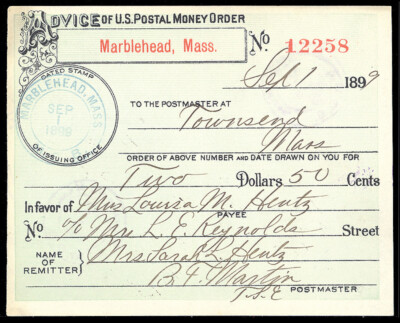 ADVICE OF U.S. POSTAL MONEY ORDER
Marblehead, Mass.
No. 12258
Sep 1 1899
DATED STAMP
MARBLEHEAD, MASS
SEP
1
1899
OF ISSUING OFFICE
TO THE POSTMASTER AT
Townsend
Mass
ORDER OF ABOVE NUMBER AND DATE DRAWN ON YOU FOR
Two Dollars 50 Cents
In favor of Miss Louisa M. Hentz
PAYEE
No c/o Mrs L. E. Reynolds Street
NAME OF REMITTER) Mrs Sarah L. Hentz
B. F. Martin
POSTMASTER